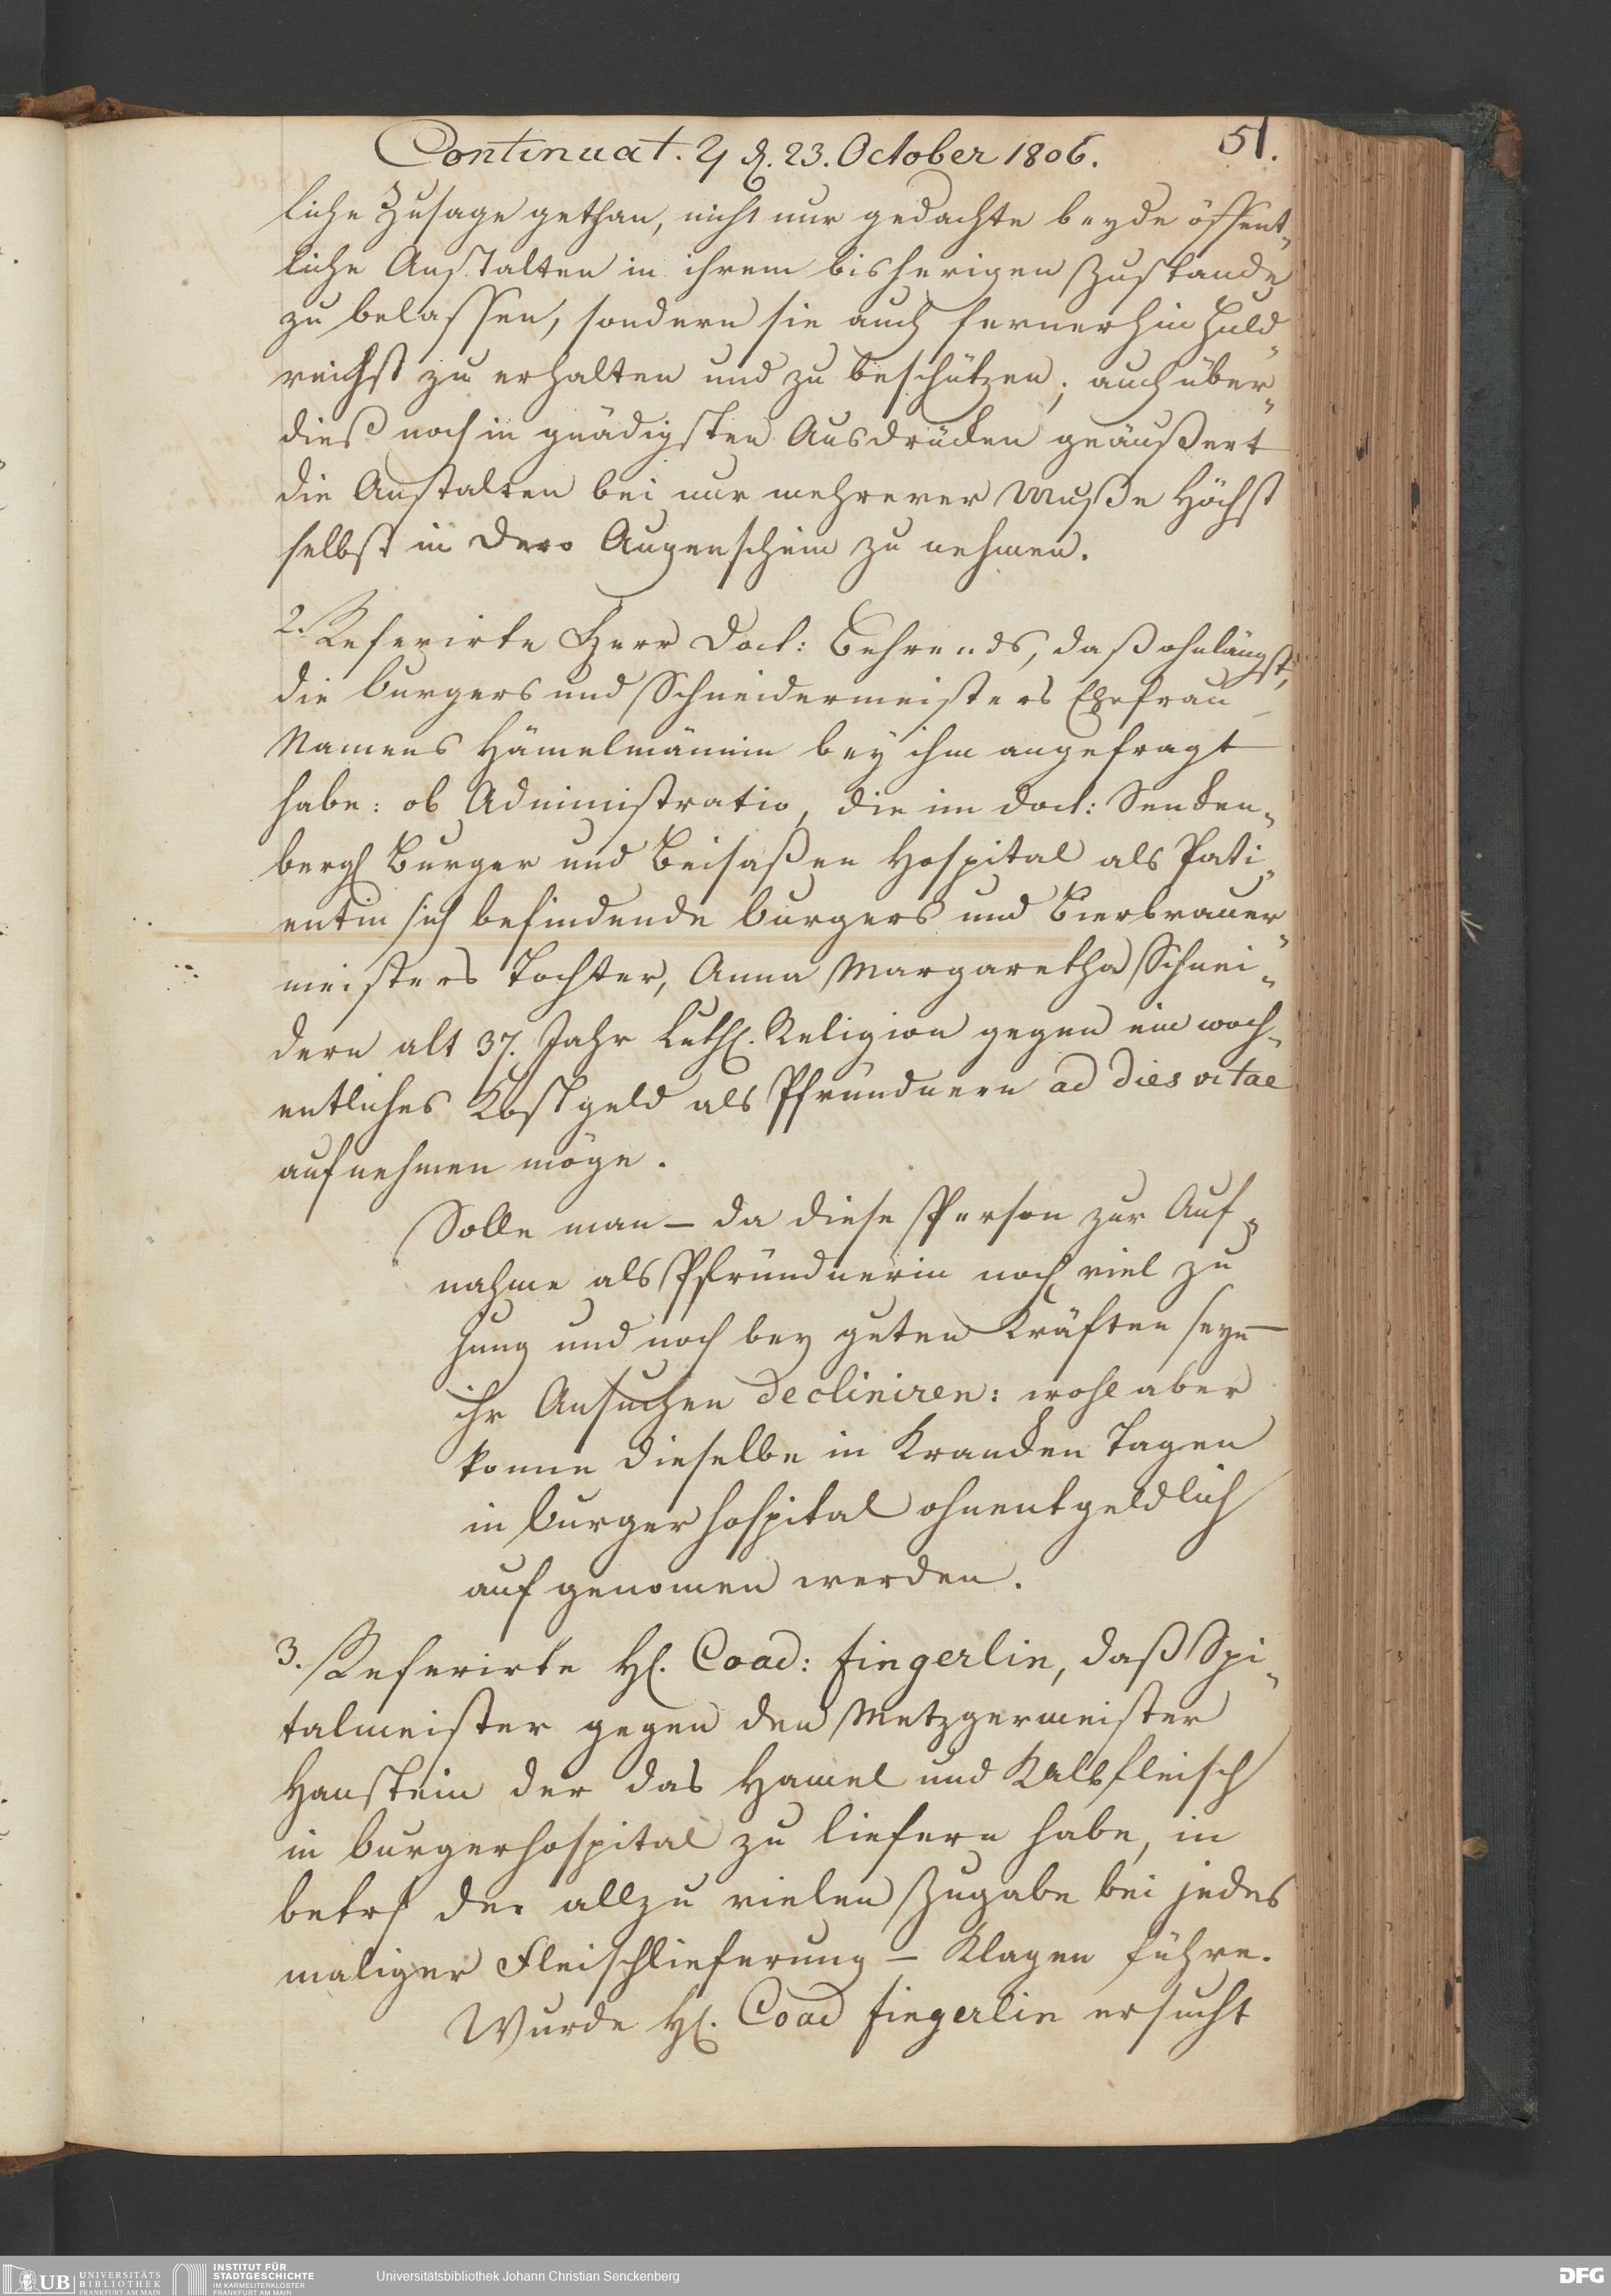 Continuat. ♃ d. 23. October 1806. 51.
liche Zusage gethan, nicht nur gedachte beyde öffent¬
liche Anstalten in ihrem bisherigen Zustande
zu belassen, sondern sie auch fernerhin huld¬
reichst zu erhalten und zu beschützen; auch über¬
dieß noch in gnädigsten Ausdrücken geäußert
die Anstalten bei nur mehrerer Muße Höchst
selbst in Dero Augenschein zu nehmen.
2. Referirte Herr Doct: Behrends, daß ohnlängst,
die burgers und Schneidermeisters Ehefrau
Namens Hämelmännin bey ihm angefragt
habe: ob Administratio, die im Doct: Sencken¬
berg Burger und Beisaßen Hospital als Pati¬
entin sich befindende burgers und Bierbrauer¬
meisters Tochter, Anna Margaretha Schnei¬
dern alt 37. Jahr Luth. Religion gegen ein woch¬
entliches Kostgeld als Pfründnern ad dies vitae
aufnehmen möge.
Solle man – da diese Person zur Auf¬
nahme als Pfründnerin noch viel zu
jung und noch bey guten Kräften seye –
ihr Ansuchen decliniren: wohl aber
konne dieselbe in Krancken Tagen
in burger hospital ohnentgeldlich
aufgenomen werden.
3. Referirte H. Coad: Fingerlin, daß Spi¬
talmeister gegen den Metzgermeister
Hanstein der das Hamel und Kalbfleisch
in burgerhospital zu liefern habe, in
betrf der allzu vielen Zugabe bei jedes
maliger Fleischlieferung – Klagen führe.
Wurde H. Coad Fingerlin ersucht
UB UNIVERSITÄTS
BIBLIOTHEK
FRANKFURT AM MAIN
INSTITUT FÜR
STADTGESCHICHTE
IM KARMELITERKLOSTER
FRANKFURT AM MAIN
Universitätsbibliothek Johann Christian Senckenberg
DFG